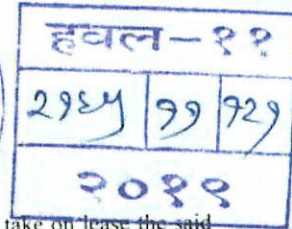 हवल-११
२१६५ ११ १२१
२०१९
take on lease the said